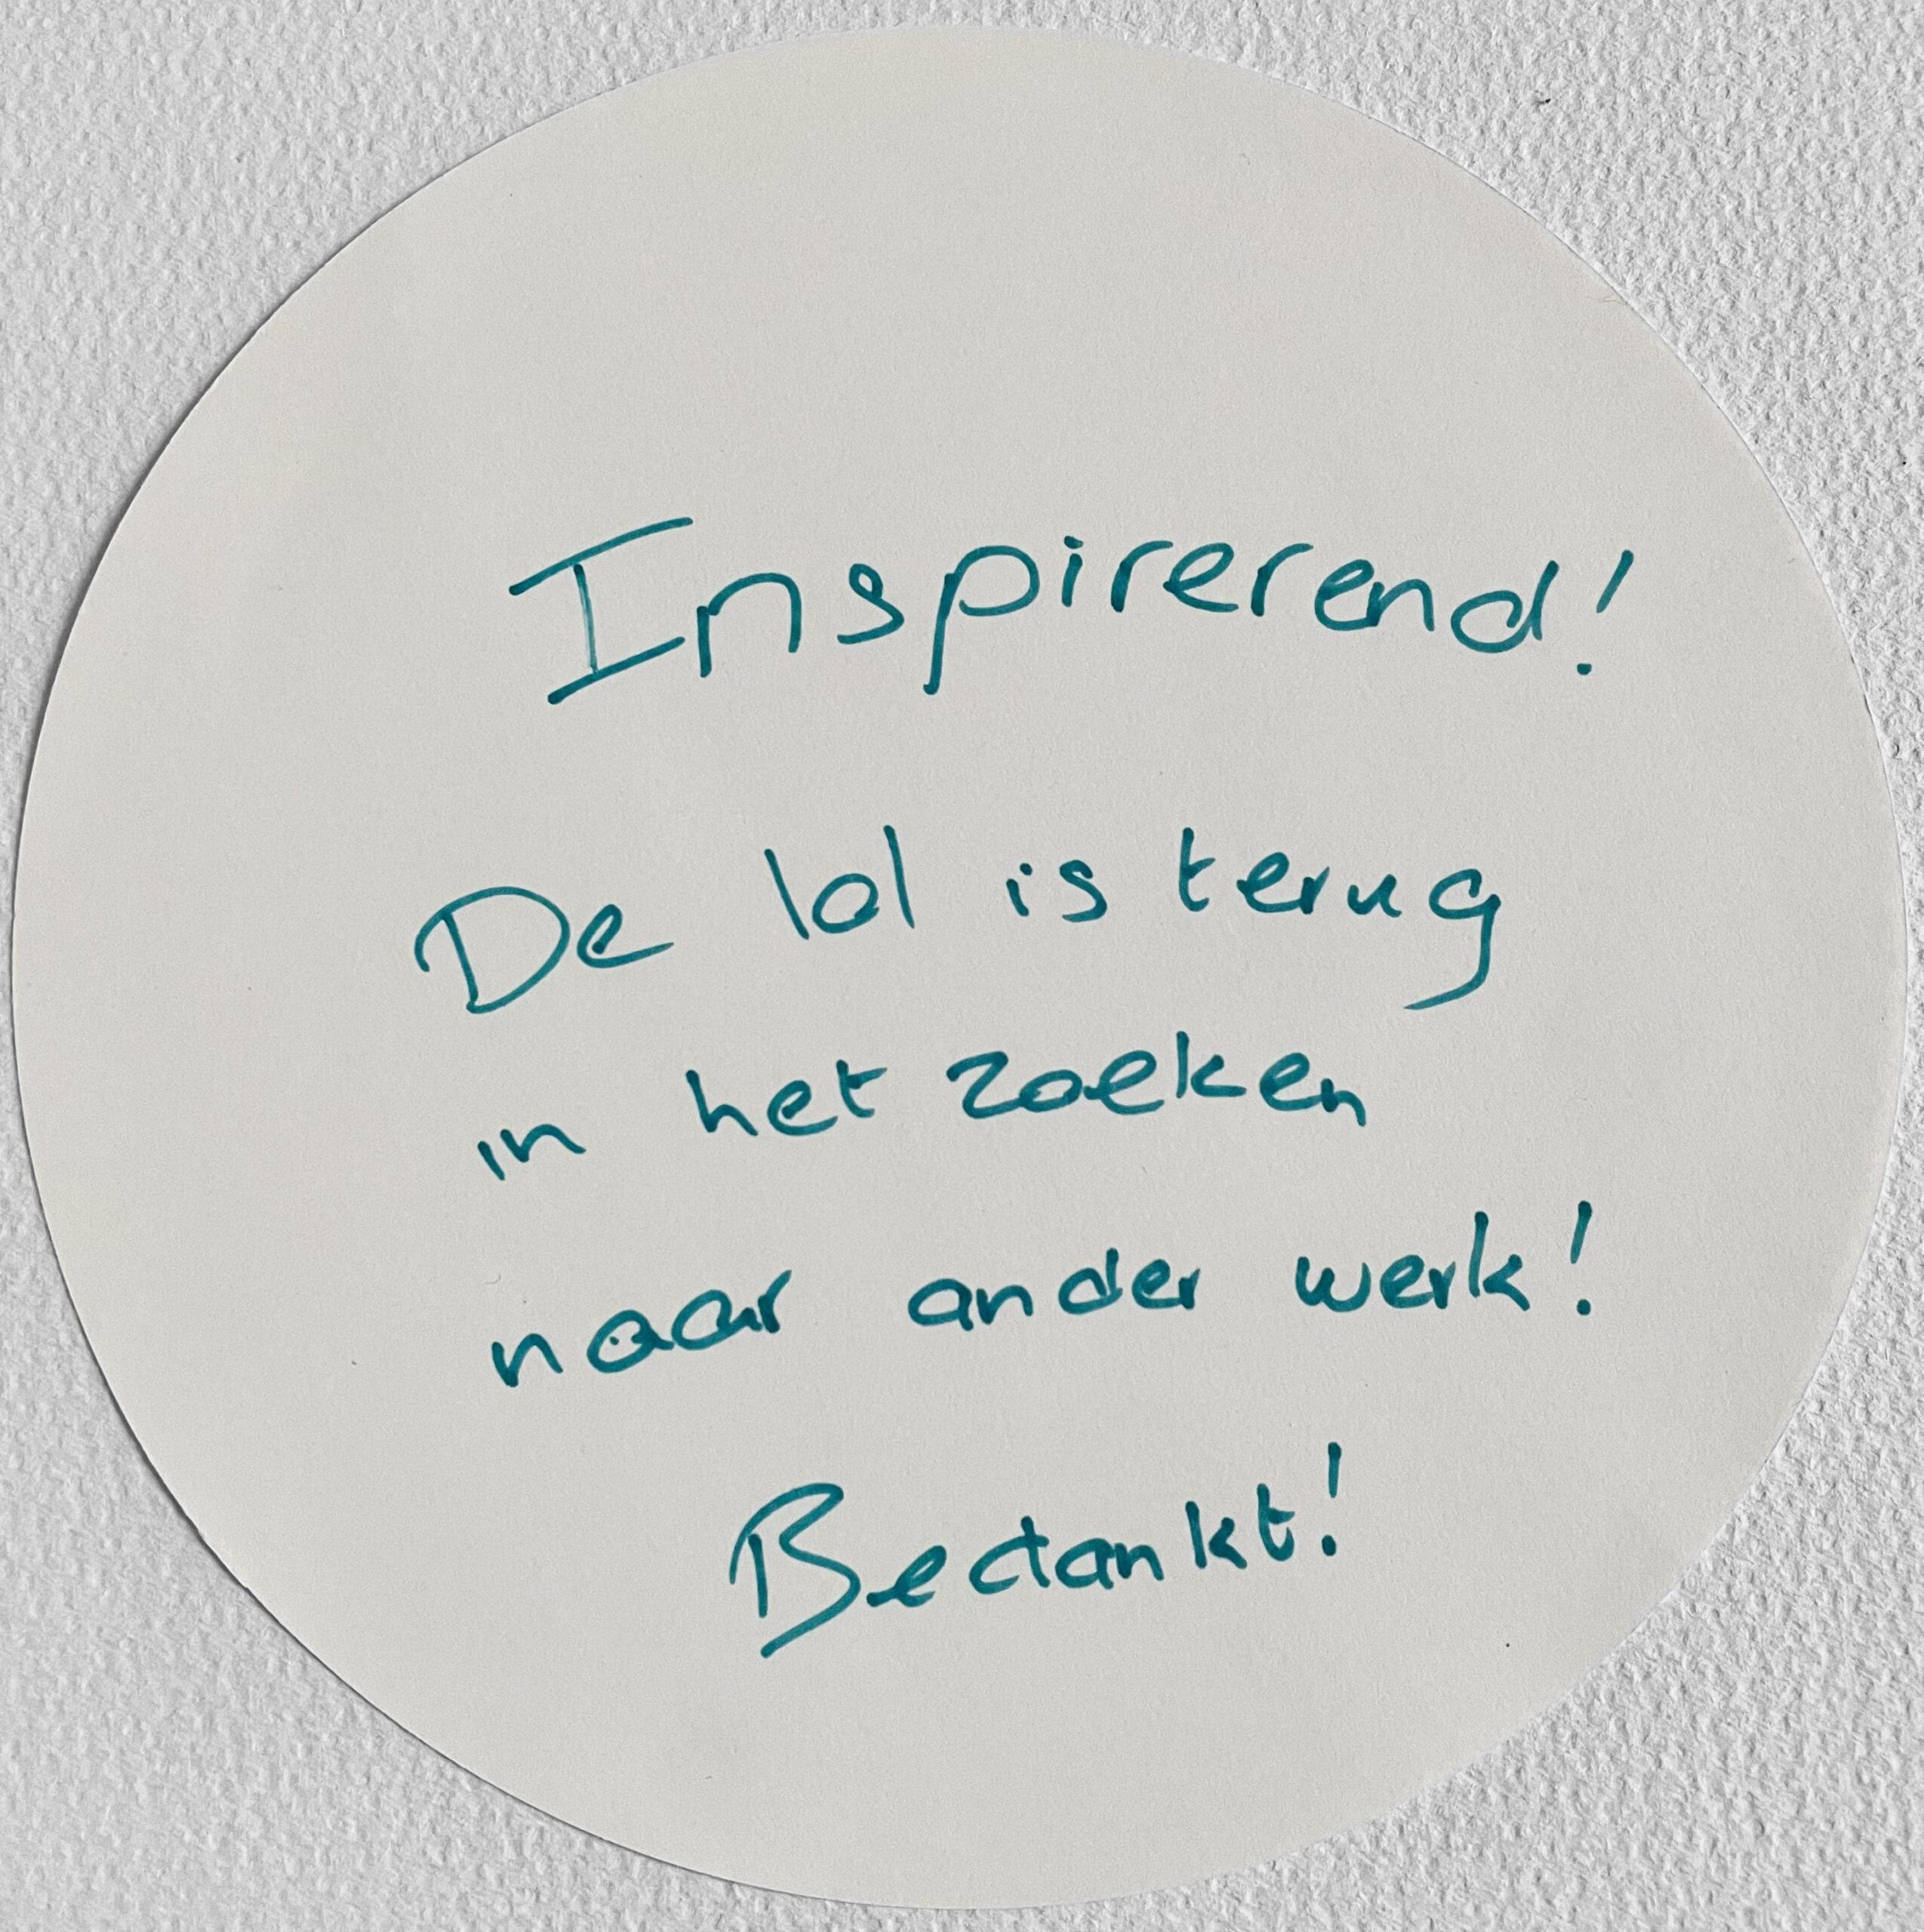 Inspirerend!
De lol is terug
in het zoeken
naar ander werk!
Bedankt!